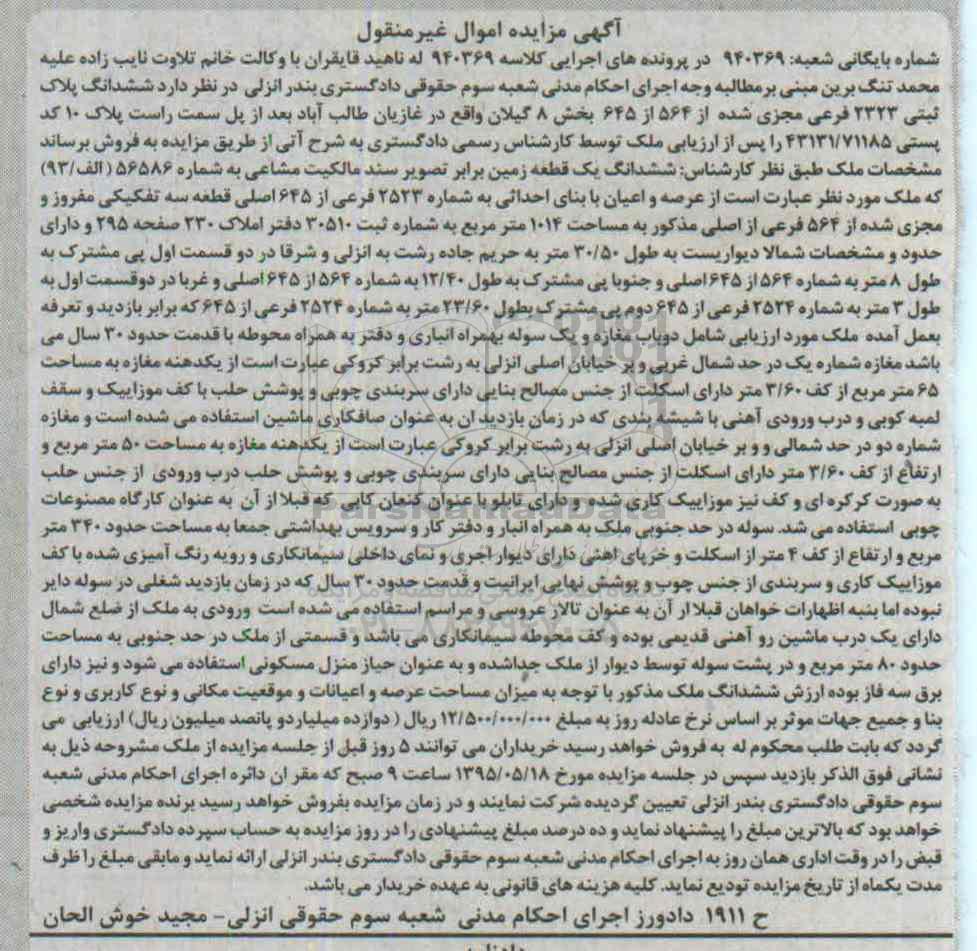 آگهی مزایده اموال غیرمنقول
شماره بایگانی شعبه: ۹۴۰۳۶۹ در پرونده های اجرایی کلاسه ۹۴۰۳۶۹ له ناهید قایقران با وکالت خانم تلاوت نایب زاده علیه
محمد تنگ برین مبنی برمطالبه وجه اجرای احکام مدنی شعبه سوم حقوقی دادگستری بندر انزلی در نظر دارد ششدانگ پلاک
ثبتی ۲۳۲۳ فرعی مجزی شده از ۵۶۴ از ۶۴۵ بخش ۸ گیلان واقع در غازیان طالب آباد بعد از پل سمت راست پلاک ۱۰ کد
پستی ۴۳۱۳۱/۷۱۱۸۵ را پس از ارزیابی ملک توسط کارشناس رسمی دادگستری به شرح آتی از طریق مزایده به فروش برساند
مشخصات ملک طبق نظر کارشناس: ششدانگ یک قطعه زمین برابر تصویر سند مالکیت مشاعی به شماره ۵۶۵۸۶ (الف/۹۳)
که ملک مورد نظر عبارت است از عرصه و اعیان با بنای احداثی به شماره ۲۵۲۳ فرعی از ۶۴۵ اصلی قطعه سه تفکیکی مفروز و
مجزی شده از ۵۶۴ فرعی از اصلی مذکور به مساحت ۱۰۱۴ متر مربع به شماره ثبت ۳۰۵۱۰ دفتر املاک ۲۳۰ صفحه ۲۹۵ و دارای
حدود و مشخصات شمالا دیواریست به طول ۳۰/۵۰ متر به حریم جاده رشت به انزلی و شرقا در دو قسمت اول پی مشترک به
طول ۸ متر به شماره ۵۶۴ از ۶۴۵ اصلی و جنوبا پی مشترک به طول ۱۲/۴۰ به شماره ۵۶۴ از ۶۴۵ اصلی و غربا در دوقسمت اول به
طول ۳ متر به شماره ۲۵۲۴ فرعی از ۶۴۵ دوم پی مشترک بطول ۲۳/۶۰ متر به شماره ۲۵۲۴ فرعی از ۶۴۵ که برابر بازدید و تعرفه
بعمل آمده ملک مورد ارزیابی شامل دوباب مغازه و یک سوله بهمراه انباری و دفتر به همراه محوطه با قدمت حدود ۳۰ سال می
باشد مغازه شماره یک در حد شمال غربی و بر خیابان اصلی انزلی به رشت برابر کروکی عبارت است از یکدهنه مغازه به مساحت
۶۵ متر مربع از کف ۳/۶۰ متر دارای اسکلت از جنس مصالح بنایی دارای سربندی چوبی و پوشش حلب با کف موزاییک و سقف
لمبه کوبی و درب ورودی آهنی با شیشه بندی که در زمان بازدید ان به عنوان صافکاری ماشین استفاده می شده است و مغازه
شماره دو در حد شمالی و و بر خیابان اصلی انزلی به رشت برابر کروکی عبارت است از یکدهنه مغازه به مساحت ۵۰ متر مربع و
ارتفاع از کف ۳/۶۰ متر دارای اسکلت از جنس مصالح بنایی دارای سربندی چوبی و پوشش حلب درب ورودی از جنس حلب
به صورت کرکره ای و کف نیز موزاییک کاری شده و دارای تابلو با عنوان کنعان کابی که قبلا از آن به عنوان کارگاه مصنوعات
چوبی استفاده می شد. سوله در حد جنوبی ملک به همراه انبار و دفتر کار و سرویس بهداشتی جمعا به مساحت حدود ۳۴۰ متر
مربع و ارتفاع از کف ۴ متر از اسکلت و خرپای اهنی دارای دیوار اجری و نمای داخلی سیمانکاری و رویه رنگ آمیزی شده با کف
موزاییک کاری و سربندی از جنس چوب و پوشش نهایی ایرانیت و قدمت حدود ۳۰ سال که در زمان بازدید شغلی در سوله دایر
نبوده اما بنبه اظهارات خواهان قبلا از آن به عنوان تالار عروسی و مراسم استفاده می شده است ورودی به ملک از ضلع شمال
دارای یک درب ماشین رو آهنی قدیمی بوده و کف محوطه سیمانکاری می باشد و قسمتی از ملک در حد جنوبی به مساحت
حدود ۸۰ متر مربع و در پشت سوله توسط دیوار از ملک جداشده و به عنوان حیاز منزل مسکونی استفاده می شود و نیز دارای
برق سه فاز بوده ارزش ششدانگ ملک مذکور با توجه به میزان مساحت عرصه و اعیانات و موقعیت مکانی و نوع کاربری و نوع
بنا و جمیع جهات موثر بر اساس نرخ عادله روز به مبلغ ۱۲/۵۰۰/۰۰۰/۰۰۰ ریال (دوازده میلیارد و پانصد میلیون ریال) ارزیابی می
گردد که بابت طلب محکوم له به فروش خواهد رسید خریداران می توانند ۵ روز قبل از جلسه مزایده از ملک مشروحه ذیل به
نشانی فوق الذکر بازدید سپس در جلسه مزایده مورخ ۱۳۹۵/۰۵/۱۸ ساعت ۹ صبح که مقر ان دائره اجرای احکام مدنی شعبه
سوم حقوقی دادگستری بندر انزلی تعیین گردیده شرکت نمایند و در زمان مزایده بفروش خواهد رسید برنده مزایده شخصی
خواهد بود که بالاترین مبلغ را پیشنهاد نماید و ده درصد مبلغ پیشنهادی را در روز مزایده به حساب سپرده دادگستری واریز و
قبض را در وقت اداری همان روز به اجرای احکام مدنی شعبه سوم حقوقی دادگستری بندر انزلی ارائه نماید و مابقی مبلغ را ظرف
مدت یکماه از تاریخ مزایده تودیع نماید. کلیه هزینه های قانونی به عهده خریدار می باشد.
ح ۱۹۱۱ دادورز اجرای احکام مدنی شعبه سوم حقوقی انزلی- مجید خوش الحان